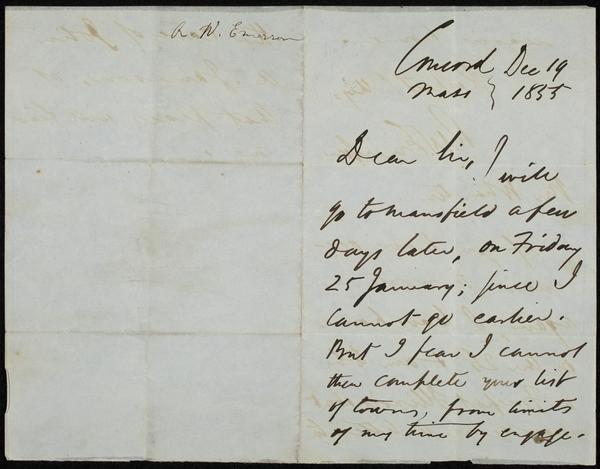 R. W. Emerson
Concord Dec 19
Mass } 1855
Dear Sir, I will
go to Mansfield a few
days later, on Friday
25 January; since I
cannot go earlier.
But I fear I cannot
then complete your list
of towns, from limits
of my time by engage-